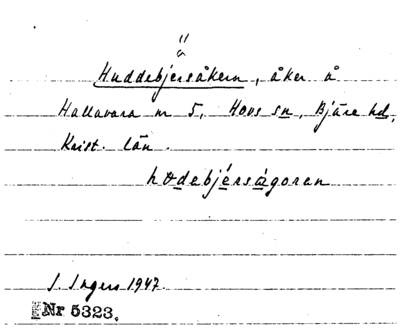 "
a
Huddebjersåkern, åker å
Hallavara nr 5, Hovs sn, Bjäre hd,
Krist. län.
hodebjérságoran
I. Ingers 1947.
Nr 5323.